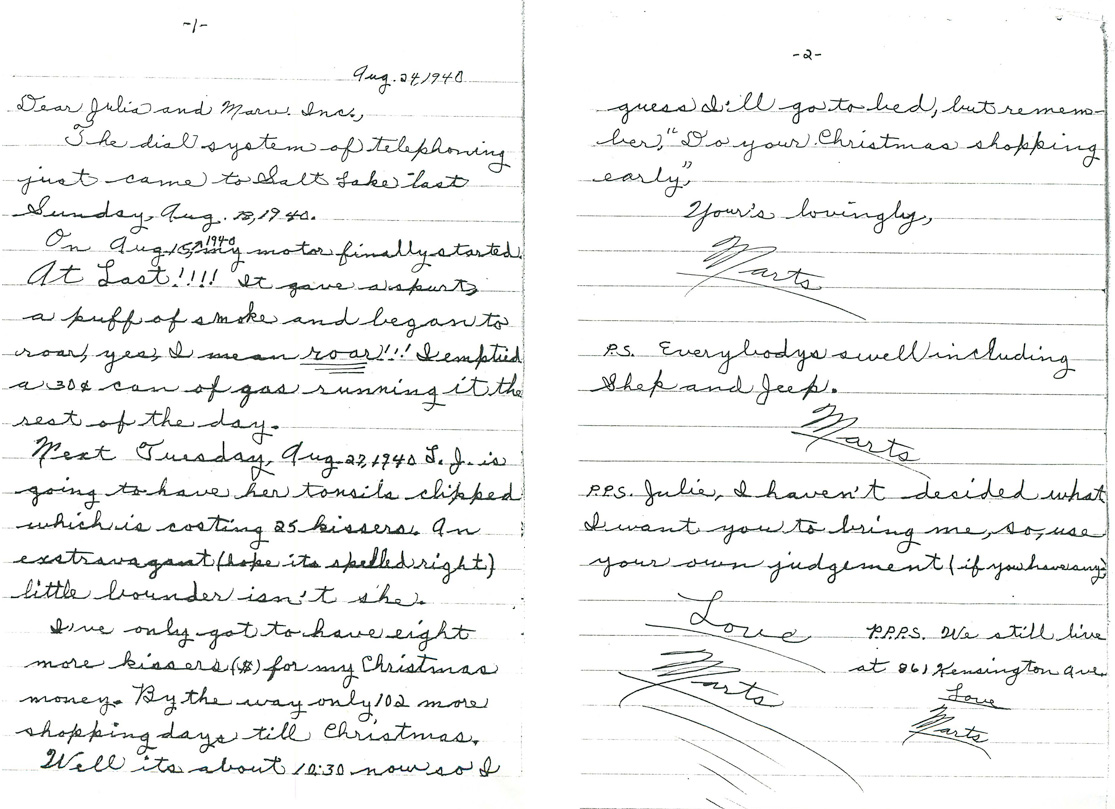 -1-
Aug. 24, 1940
Dear Julia and Marv. Inc.,
The dial system of telephoning
just came to Salt Lake last
Sunday, Aug. 18, 1940.
On Aug. 15, 1940 my motor finally started.
At Last!!!! It gave a spurt,
a puff of smoke and began to
roar, yes, I mean roar!!! I emptied
a 30¢ can of gas running it the
rest of the day.
Next Tuesday, Aug. 27, 1940 L. J. is
going to have her tonsils clipped
which is costing 25 kissers. An
exstravagant (hope its spelled right)
little bounder isn't she.
I've only got to have eight
more kissers ($) for my Christmas
money. By the way only 102 more
shopping days till Christmas.
Well its about 10:30 now so I
-2-
guess I'll go to bed, but remem-
ber, "Do your Christmas shopping
early"
Your's lovingly,
Marts
P.S. Everybodys swell including
Shep and Jeep.
Marts
P.P.S. Julie, I haven't decided what
I want you to bring me, so, use
your own judgement (if you have any)
Love
Marts
P.P.P.S. We still live
at 861 Kensington Ave.
Love
Marts